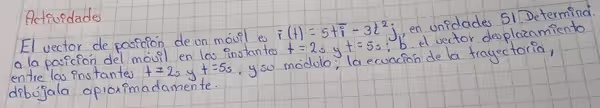 Actividades
El vector de posición de un móvil es r̄(t) = 5t ī - 3t² j, en unidades SI Determina.
a la posición del móvil en los instantes t = 2s y t = 5s; b. el vector desplazamiento
entre los instantes t = 2s y t = 5s, y su modulo; la ecuación de la trayectoria,
dibújala aproximadamente.